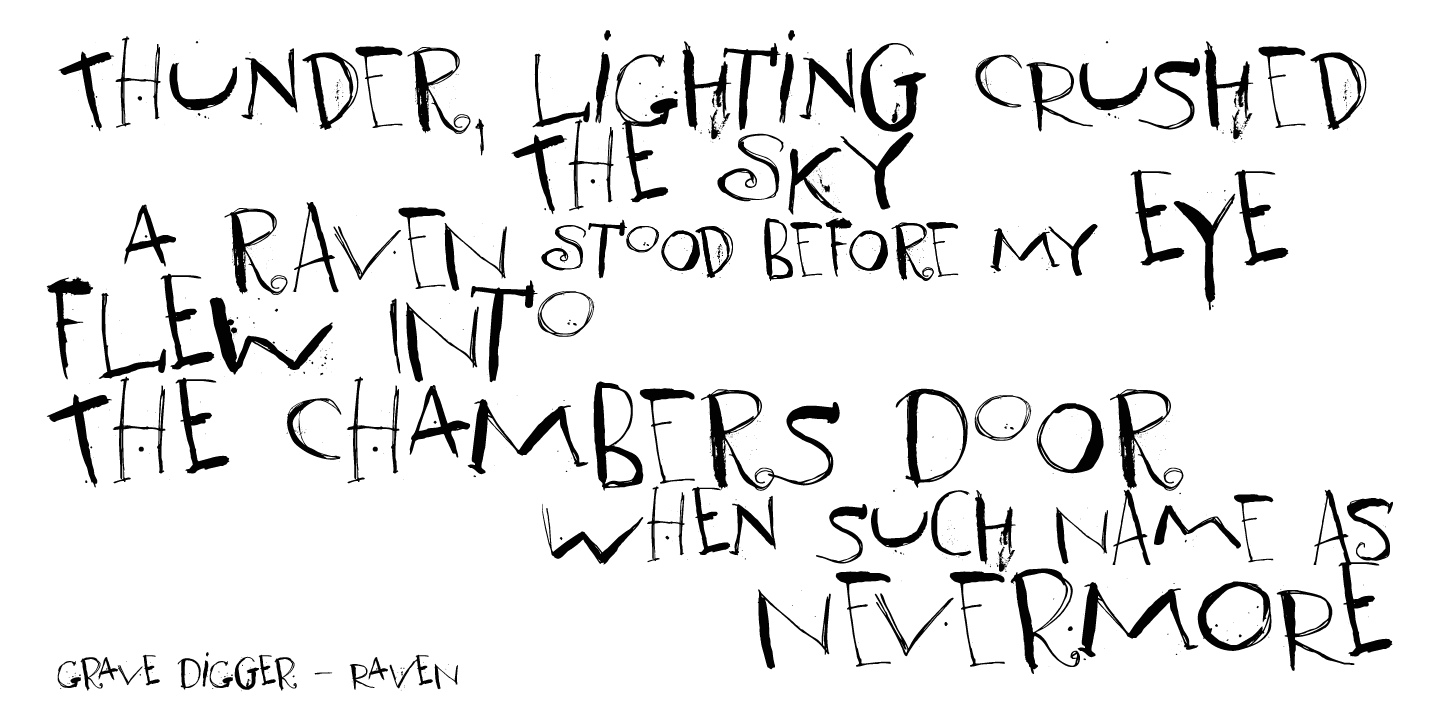 THUNDER, LiGHTiNG CRUSHED
THE SKY
A RAVEN STOOD BEFORE MY EYE
FLEW INTO
THE CHAMBERS DOOR
WHEN SUCH NAME AS
NEVERMORE
GRAVE DiGGER – RAVEN